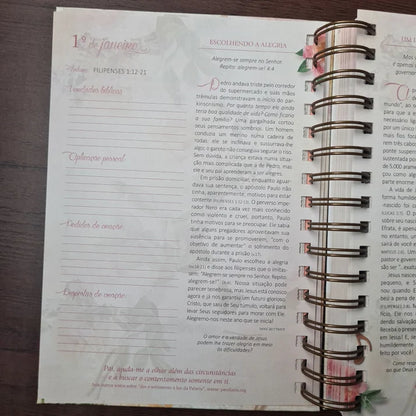 1.º de janeiro
Leitura: FILIPENSES 1:12-21
Verdades bíblicas:
Aplicação pessoal:
Pedidos de oração:
Respostas de oração:
ESCOLHENDO A ALEGRIA
Alegrem-se sempre no Senhor.
Repito: alegrem-se! 4:4
Pedro andava triste pelo corredor
do supermercado e suas mãos
trêmulas demonstravam o início do par-
kinsonismo. Por quanto tempo ele ainda
teria boa qualidade de vida? Como ficaria
a sua família? Uma gargalhada cortou
seus pensamentos sombrios. Um homem
conduzia um menino numa cadeira de
rodas; ele se inclinava e sussurrava-lhe
algo; o garoto não conseguia segurar o riso.
Sem dúvida, a criança estava numa situa-
ção mais complicada que a de Pedro, mas
ele e seu pai aprenderam a ser alegres.
Em prisão domiciliar, enquanto aguar-
dava sua sentença, o apóstolo Paulo não
tinha, aparentemente, motivos para estar
contente (FILIPENSES 1:12-13). O governo impe-
rador Nero era cada vez mais conhecido
como violento e cruel, portanto, Paulo
tinha motivos para se preocupar. Ele sabia
que alguns pregadores aproveitavam sua
ausência para se promoverem, "com o
objetivo de aumentar" o sofrimento do
apóstolo durante a prisão (v.17).
Ainda assim, Paulo escolheu a alegria
(vv.18-21) e disse aos filipenses que o imitas-
sem: "Alegrem-se sempre no Senhor. Repito:
alegrem-se!" (4:4). Nossa situação pode
parecer tenebrosa, mas Jesus está conosco
agora e já nos garantiu um futuro glorioso.
Cristo, que saiu de Seu túmulo, voltará para
levar Seus seguidores para morar com Ele.
Alegremo-nos neste ano que se inicia!
O amor e a verdade de Jesus
podem lhe trazer alegria em meio
às dificuldades?
Pai, ajuda-me a olhar além das circunstâncias
e a buscar o contentamento somente em ti.